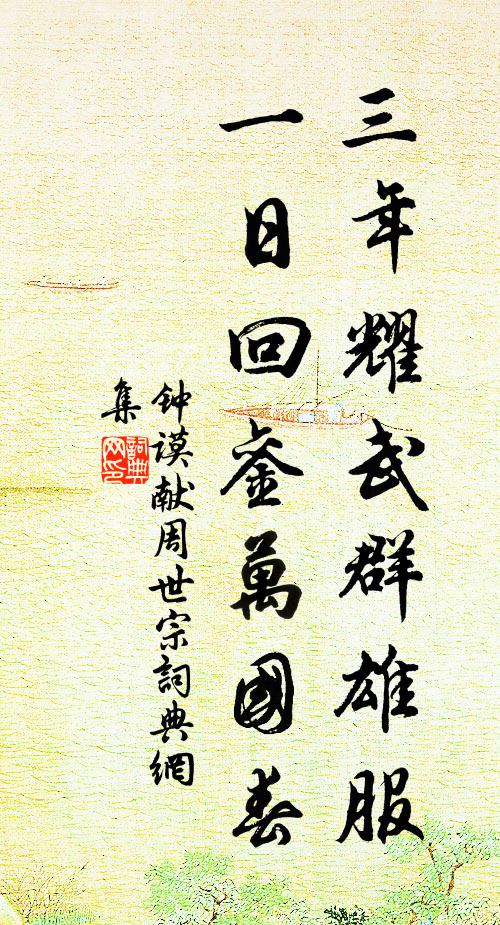 三年耀武群雄服
一日回銮萬國春
钟谟献周世宗詞典網
集
詞典
网印